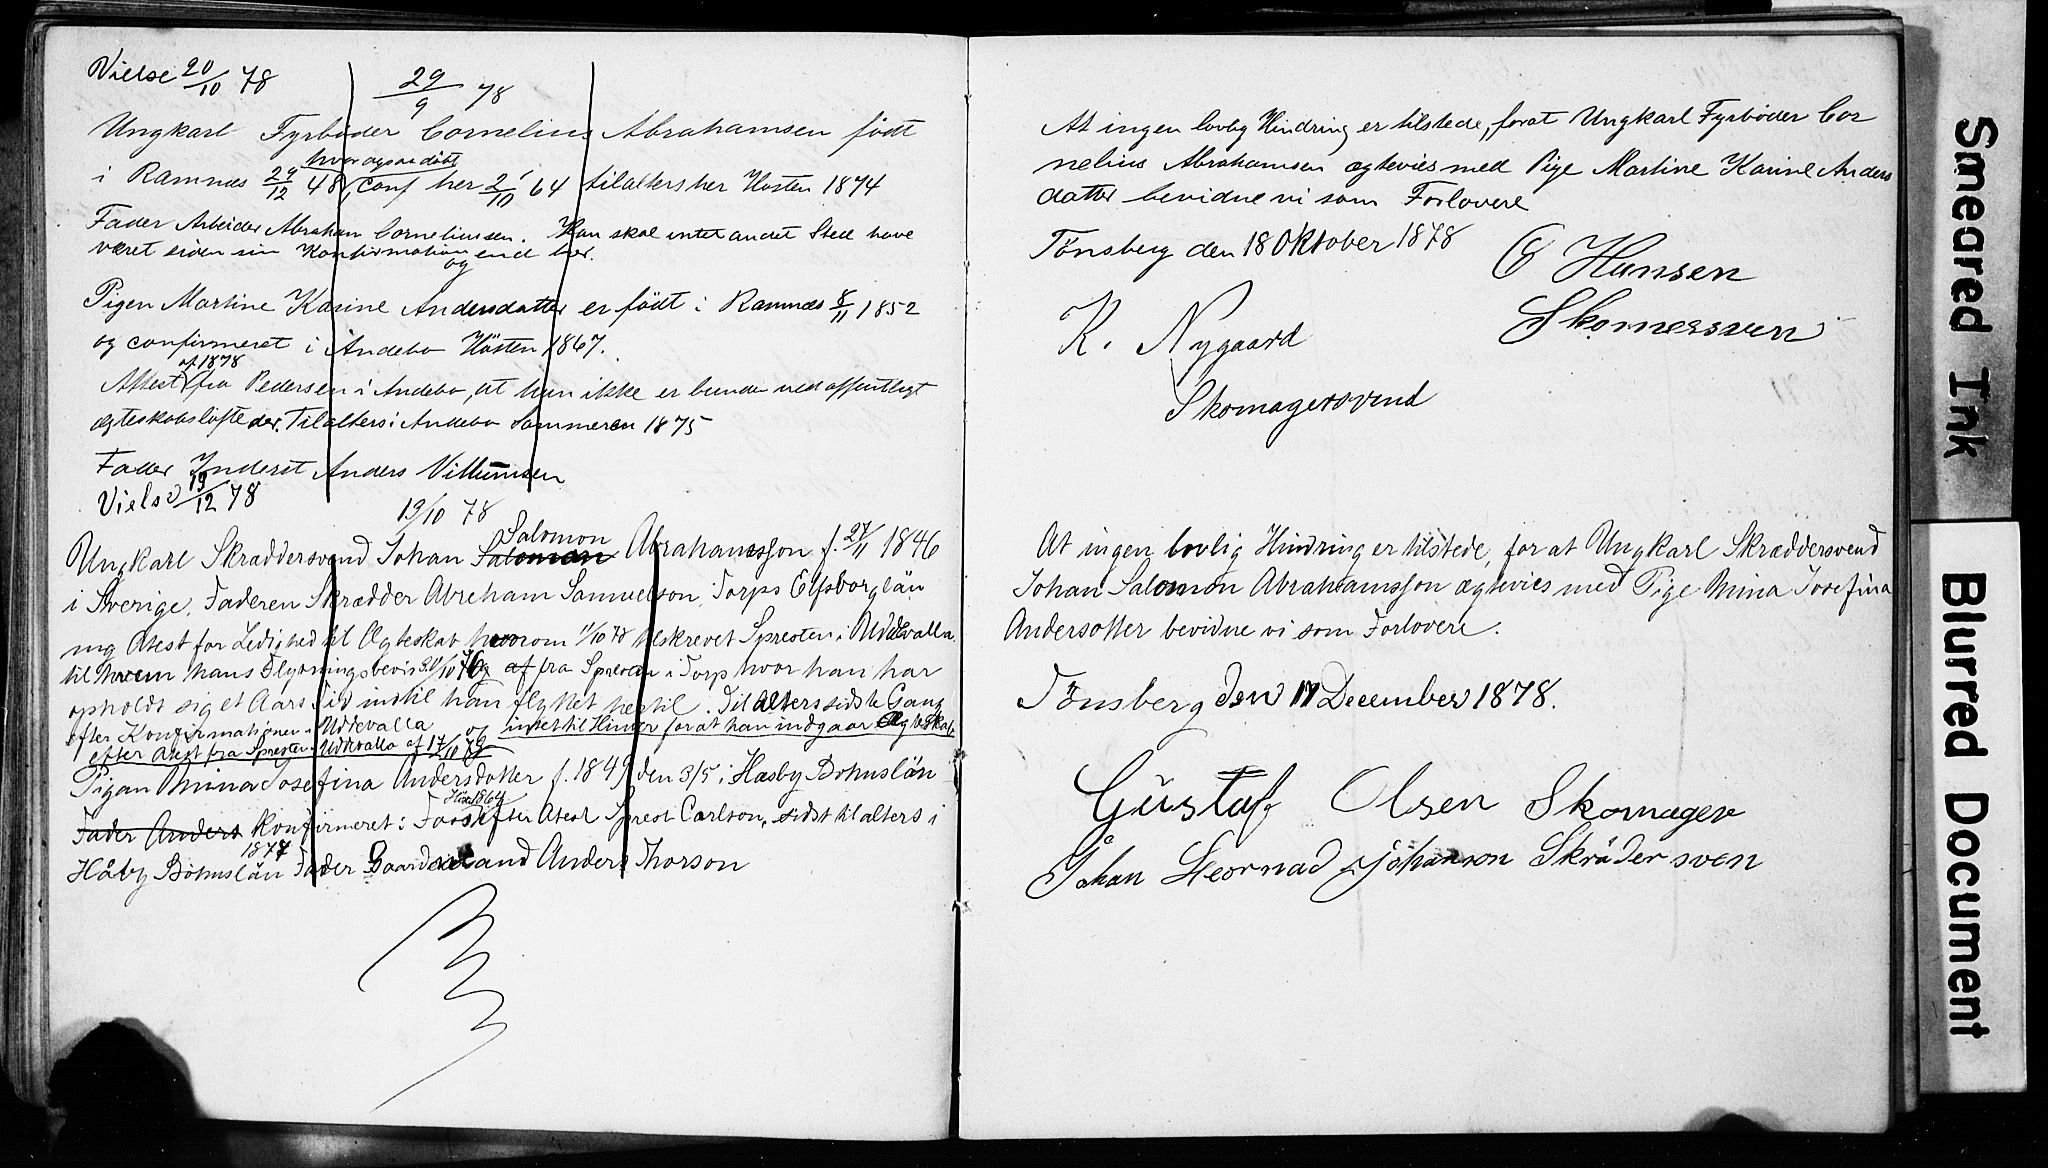 Vielse 20/10 78
29/9 78
Ungkarl Fyrbøder Cornelius Abrahamsen født
hvor ogsaa døbt
i Ramnæs 29/12 48, conf her 2/10 64 tilalters her Høsten 1874
Fader Arbeider Abraham Corneliusen. Han skal intet andet Sted have
været siden sin Konfirmation end her.
og
Pigen Martine Karine Andersdatter er født i Ramnæs 8/11 1852
og confirmeret i Andebo Høsten 1867.
af 1878
Attest fra Pedersen i Andebo, at hun ikke er bunden ved offentligt
ægteskabsløfte der. Tilalters i Andebo Sommeren 1875
Fader Inderst Anders Villumsen
Vielse 19/12 78
19/10 78
Salomon
Ungkarl Skræddersvend Johan Saloman Abrahamsson f. 27/11 1846
i Sverige. Faderen Skrædder Abreham Samuelson, Torps Elfsborglän
mg Atest for Ledighed til Ægteskab hvorom 11/10 78 tilskrevet Spresten i Uddevalla.
til hvem hans Flytningsbevis 30/10 76 af fra Spresten i Torp hvor han har
opholdt sig et Aars Tid indtil han flyttet hertil. Til Alters sidste Gang
efter Konfirmationen i Uddevalla og intet til Hinder for at han indgaar Ægteskab
efter Atest fra Spresten i Uddevalla af 17/10 78
Pigan Mina Josefina Andersdotter f. 1849 den 3/5 i Hasby Bohuslän
Høst 1864
Fader Anders Konfirmeret i Foss efter Atest Sprest Carlson, sidst til alters i
1877
Håby Bohuslän Fader Gaardmand Anders Thorson
At ingen lovlig Hindring er tilstede, forat Ungkarl Fyrbøder Cor
nelius Abrahamsen ægtevies med Pige Martine Karine Anders
datter bevidne vi som Forlovere
Tønsberg den 18 Oktober 1878
C Hansen
Skomessven
K. Nygaard
Skomagersvend
At ingen lovlig Hindring er tilstede, for at Ungkarl Skræddersvend
Johan Salomon Abrahamsson ægtevies med Pige Mina Josefina
Andersotter bevidne vi som Forlovere.
Tønsberg den 17 December 1878.
Gustaf Olsen Skomager
Johan Leornad Johanson Skräder sven
Smeared Ink
Blurred Document